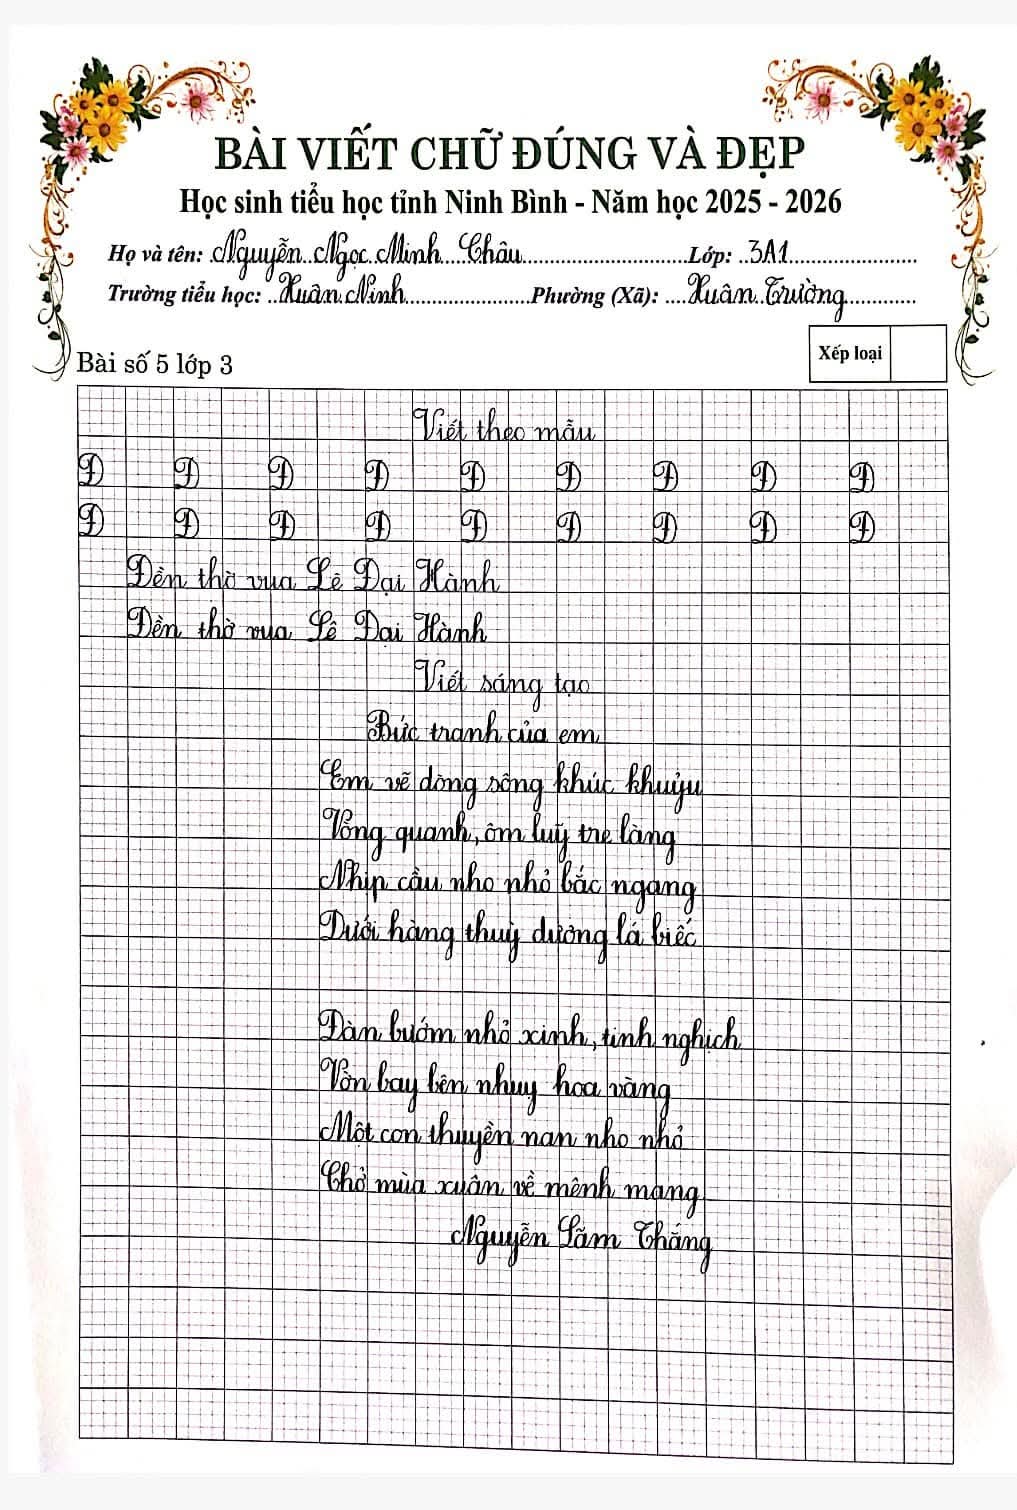 BÀI VIẾT CHỮ ĐÚNG VÀ ĐẸP
Học sinh tiểu học tỉnh Ninh Bình - Năm học 2025 - 2026
Họ và tên: Nguyễn Ngọc Minh Châu Lớp: 3A1
Trường tiểu học: Xuân Ninh Phường (Xã): Xuân Trường
Xếp loại
Bài số 5 lớp 3
Viết theo mẫu
Đ Đ Đ Đ Đ Đ Đ Đ Đ
Đ Đ Đ Đ Đ Đ Đ Đ Đ
Đền thờ vua Lê Đại Hành
Đền thờ vua Lê Đại Hành
Viết sáng tạo
Bức tranh của em
Em vẽ dòng sông khúc khuỷu
Vòng quanh, ôm luỹ tre làng
Nhịp cầu nho nhỏ bắc ngang
Dưới hàng thuỳ dương lá biếc
Đàn bướm nhỏ xinh, tinh nghịch
Vờn bay bên nhuỵ hoa vàng
Một con thuyền nan nho nhỏ
Chở mùa xuân về mênh mang
Nguyễn Lãm Thắng